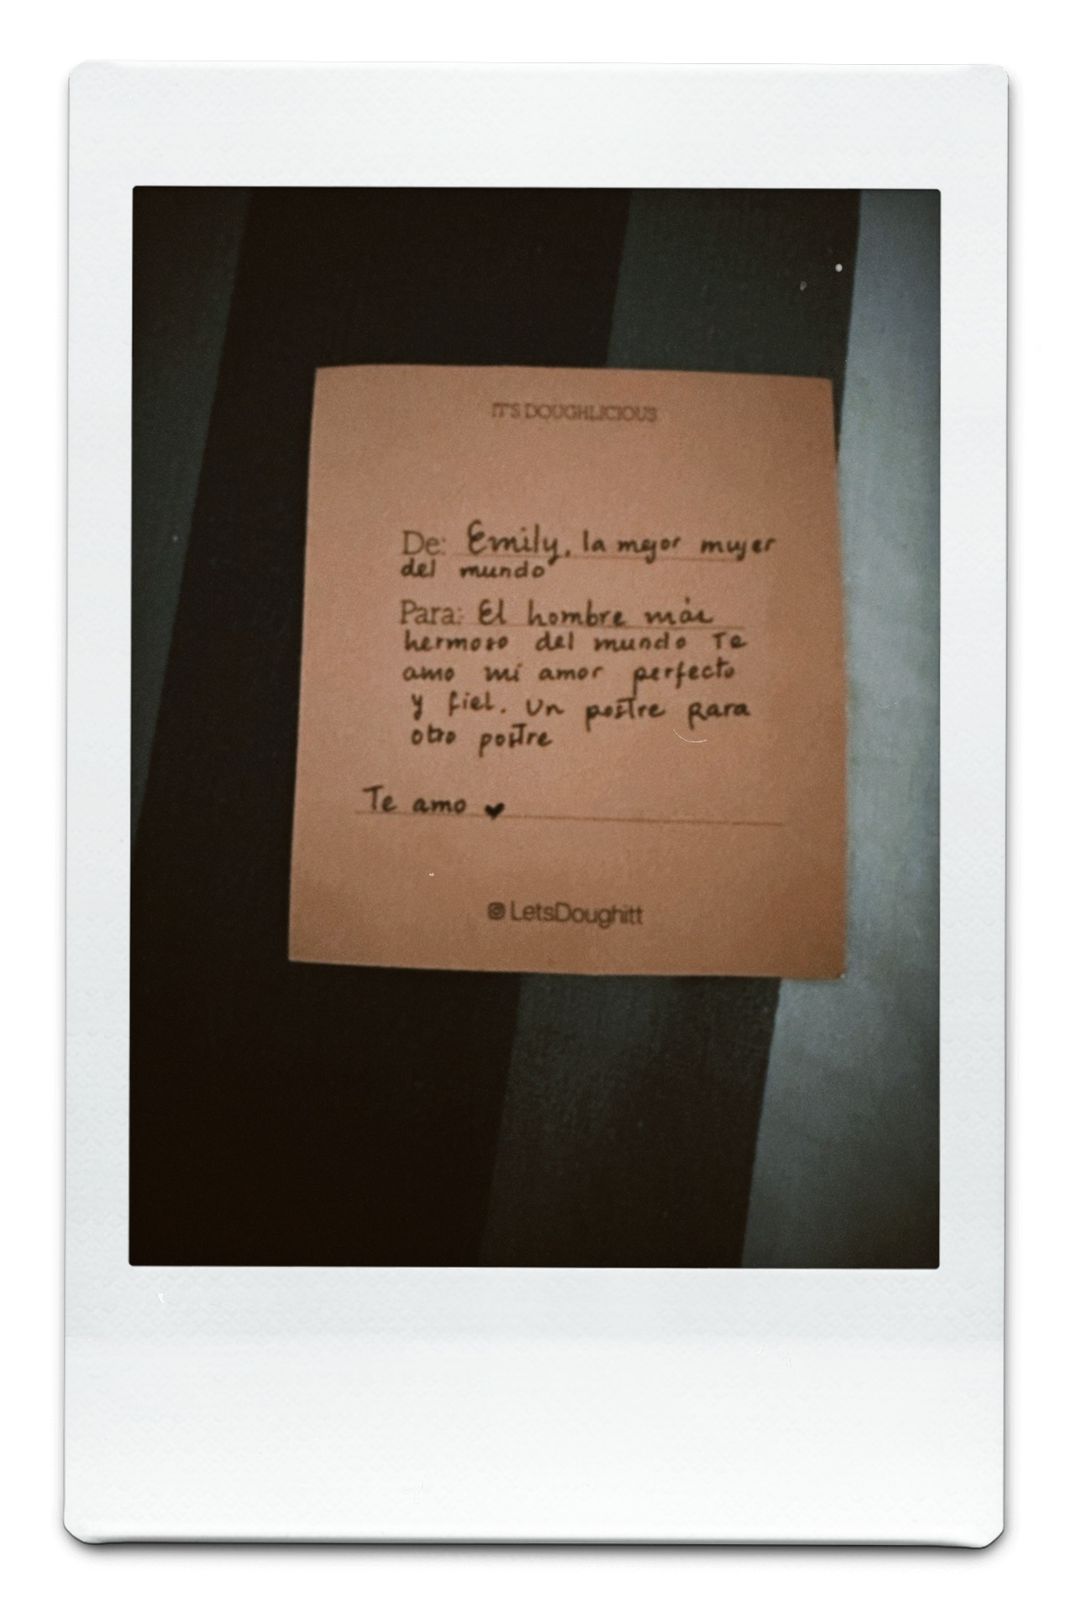 IT'S DOUGHLICIOUS
De: Emily, la mejor mujer
del mundo
Para: El hombre más
hermoso del mundo Te
amo mi amor perfecto
y fiel. Un postre para
otro postre
Te amo ♥
LetsDoughitt